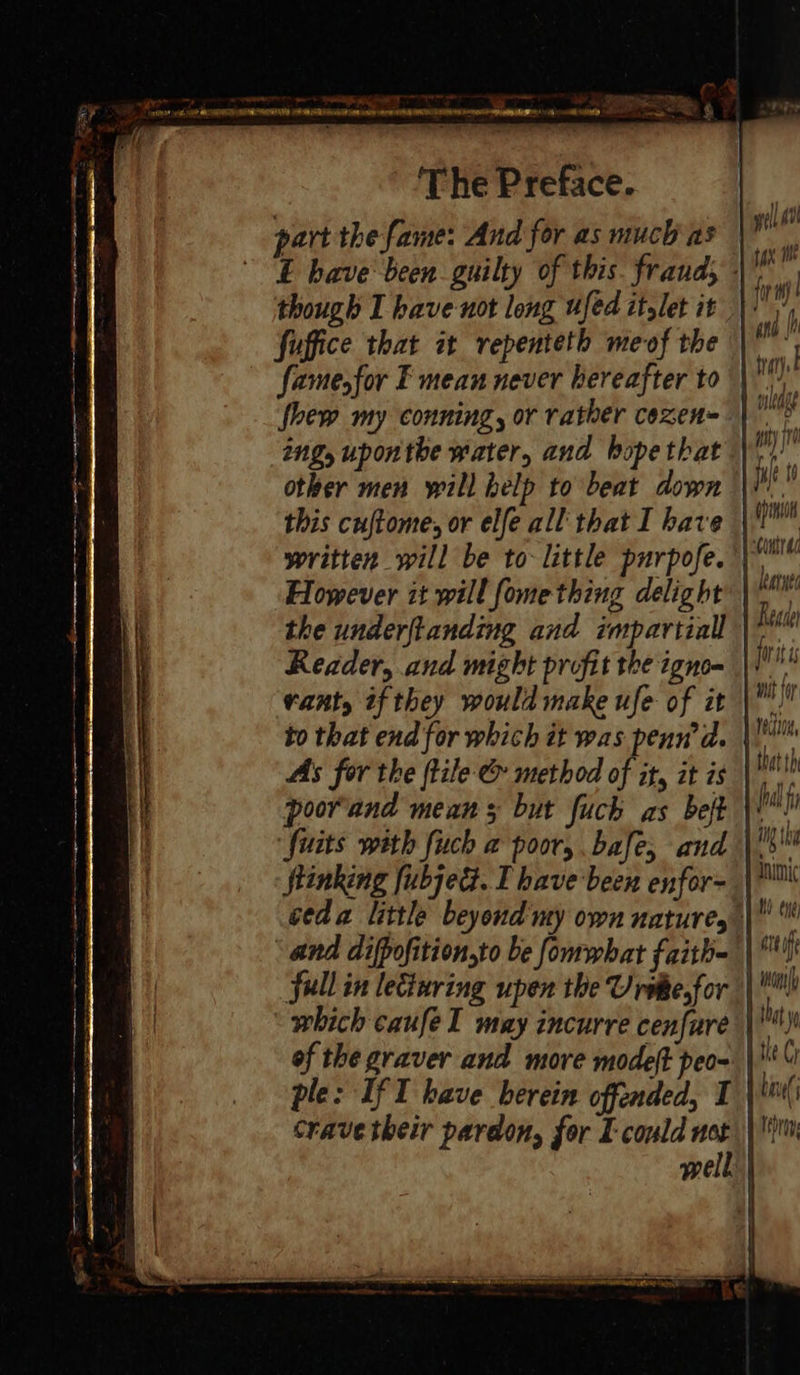 The Preface.
part the ſame: And for as much as
I have been guilty of this fraud;
though I have not long uſed it,let it
ſuffice that it repenteth me of the
ſame,for I mean never hereafter to
ſhew my conning, or rather cozen-
ing, upon the water, and hope that
other men will help to beat down
this cuſtome, or elſe all that I have
written will be to little purpoſe.
However it will ſomething delight
the underſtanding and impartiall
Reader, and might profit the igno-
rant, if they would make uſe of it
to that end for which it was penn'd.
As for the ſtile & method of it, it is
poor and mean; but ſuch as beſt
ſuits with ſuch a poor, baſe, and
ſtinking ſubject. I have been enfor-
ced a little beyond my own nature,
and diſpoſition,to be ſomwhat faith-
full in lecturing upon the Urine,for
which cauſe I may incurre cenſure
of the graver and more modeſt peo-
ple: If I have herein offended, I
crave their pardon, for I could not
well